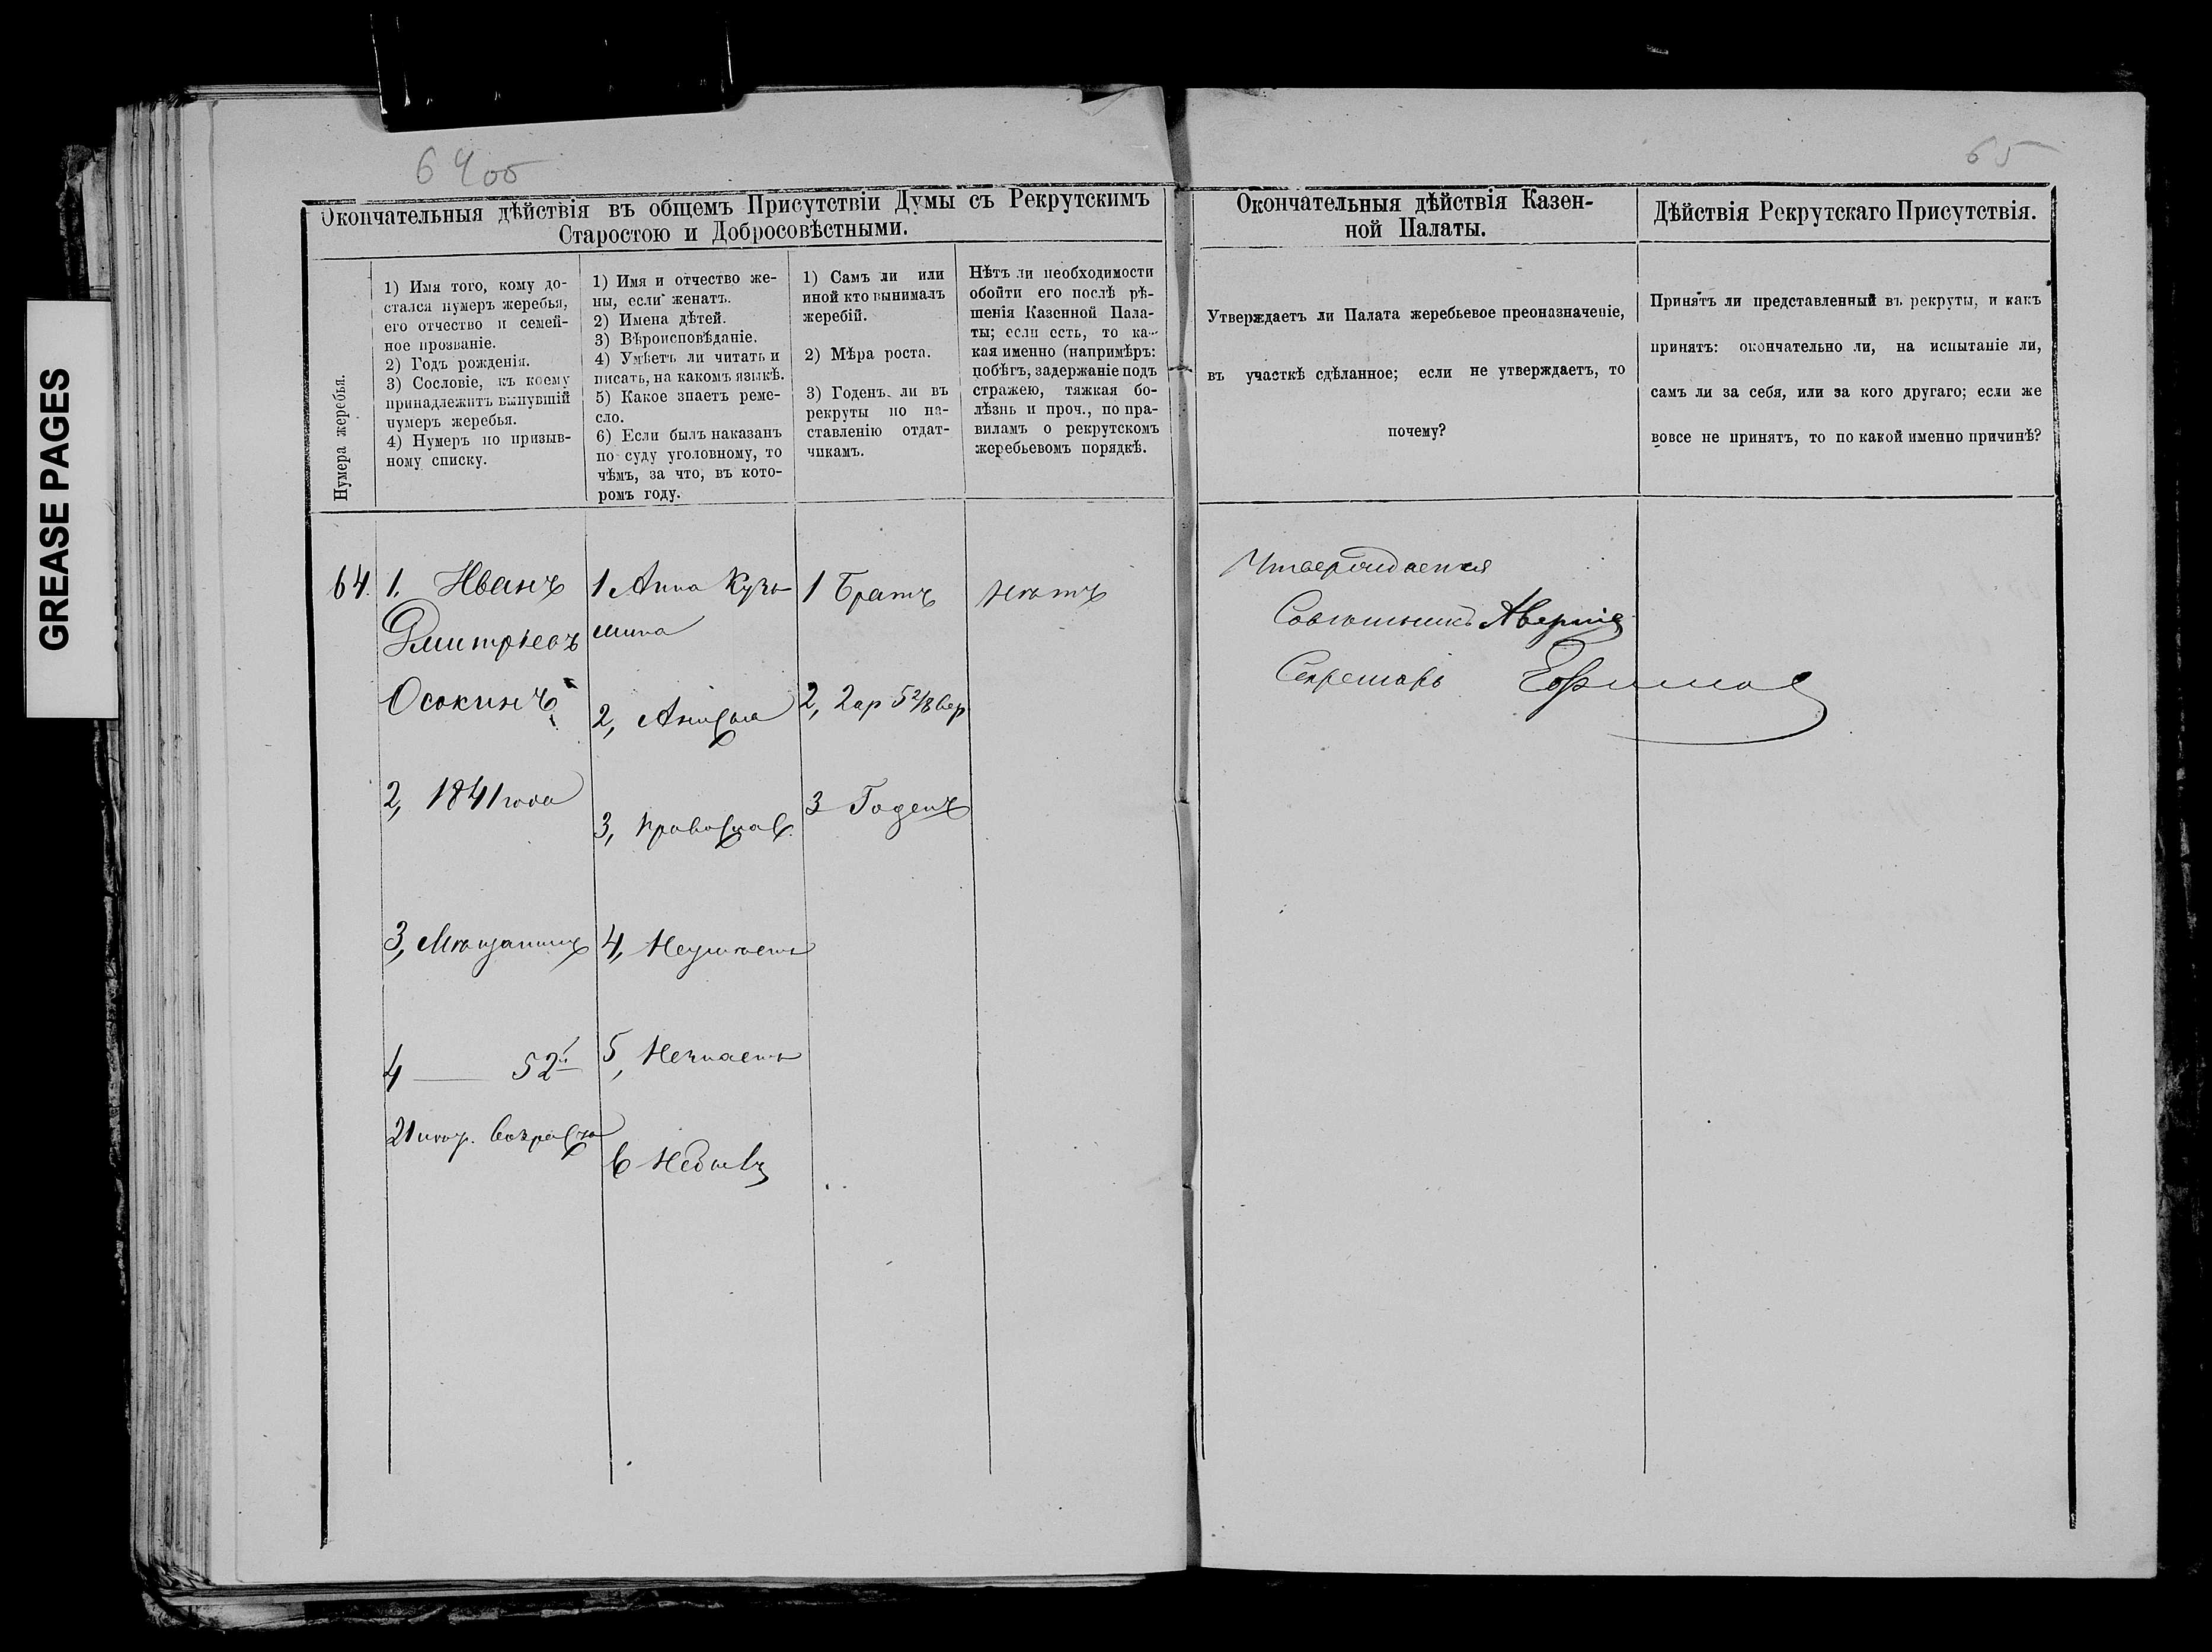 GREASE PAGES
64об
65
Окончательныя дѣйствія въ общемъ Присутствіи Думы съ Рекрутскимъ
Старостою и Добросовѣстными.
Нумера жеребья.
1) Имя того, кому до-
стался нумеръ жеребья,
его отчество и семей-
ное прозваніе.
2) Годъ рожденія.
3) Сословіе, къ коему
принадлежитъ вынувшій
нумеръ жеребья.
4) Нумеръ по призыв-
ному списку.
1) Имя и отчество же-
ны, если женатъ.
2) Имена дѣтей.
3) Вѣроисповѣданіе.
4) Умѣетъ ли читать и
писать, на какомъ языкѣ.
5) Какое знаетъ реме-
сло.
6) Если былъ наказанъ
по суду уголовному, то
чѣмъ, за что, въ кото-
ромъ году.
1) Самъ ли или
иной кто вынималъ
жеребій.
2) Мѣра роста.
3) Годенъ ли въ
рекруты по на-
ставленію отдат-
чикамъ.
Нѣтъ ли необходимости
обойти его послѣ рѣ-
шенія Казенной Пала-
ты; если есть, то ка-
кая именно (напримѣръ:
побѣгъ, задержаніе подъ
стражею, тяжкая бо-
лѣзнь и проч., по пра-
виламъ о рекрутскомъ
жеребьевомъ порядкѣ.
Окончательныя дѣйствія Казен-
ной Палаты.
Утверждаетъ ли Палата жеребьевое преоназначеніе,
въ участкѣ сдѣланное; если не утверждаетъ, то
почему?
Дѣйствія Рекрутскаго Присутствія.
Принятъ ли представленный въ рекруты, и какъ
принятъ: окончательно ли, на испытаніе ли,
самъ ли за себя, или за кого другаго; если же
вовсе не принятъ, то по какой именно причинѣ?
64.
1. Иванъ
Дмитріевъ
Осокинъ
2, 1841 года
3, Мѣщанинъ
4 — 52й
21 возраста
1 Анна Кузь
мина
2, Анисья
3, Православ.
4, Неумѣетъ
5, Незнаетъ
6 Небылъ
1 Братъ
2, 2 ар 5 2/8 вер
3 Годенъ
Нѣтъ
Утверждается
Совѣтникъ
Секретарь